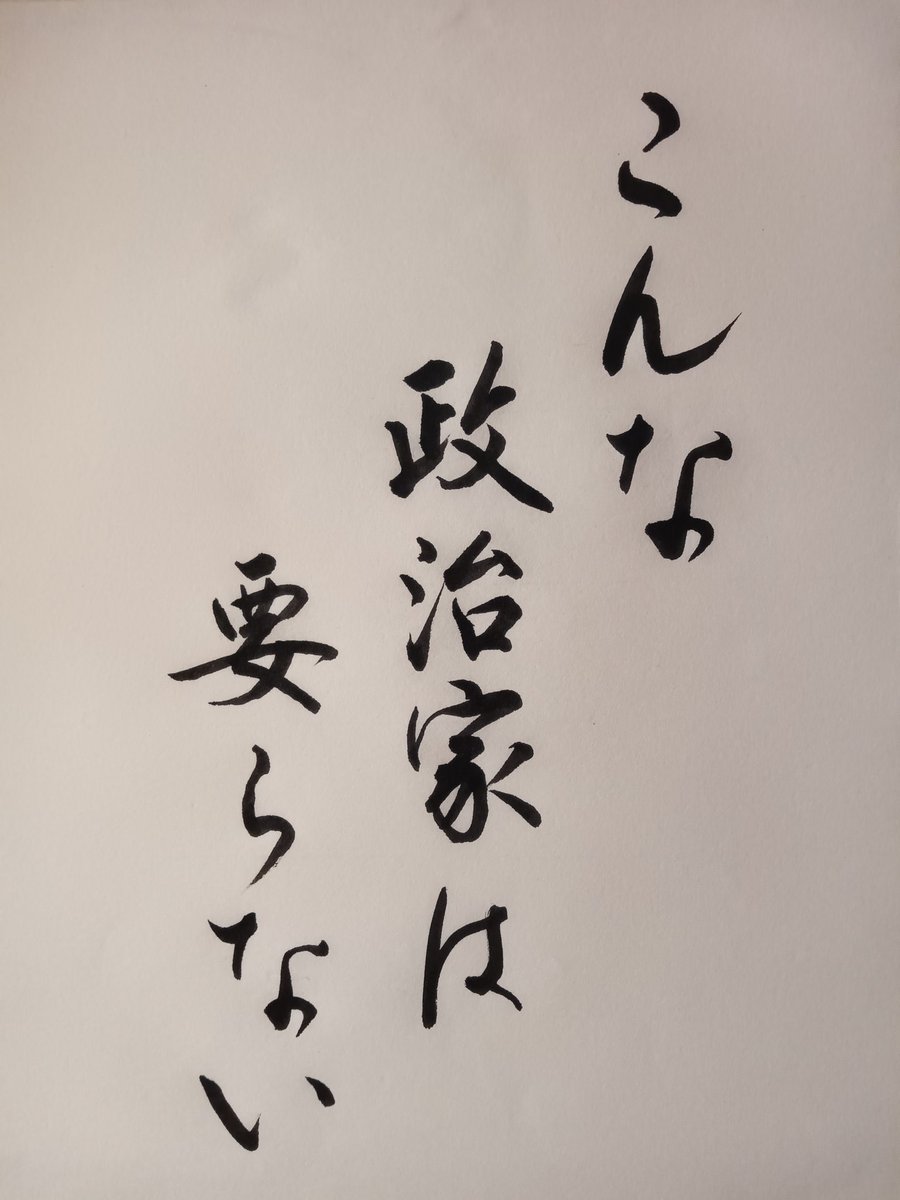 こんな
政治家は
要らない